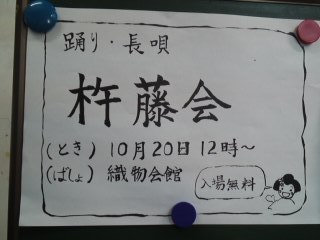 踊り・長唄
杵藤会
(とき) 10月20日 12時~
(ばしょ) 織物会館
入場無料